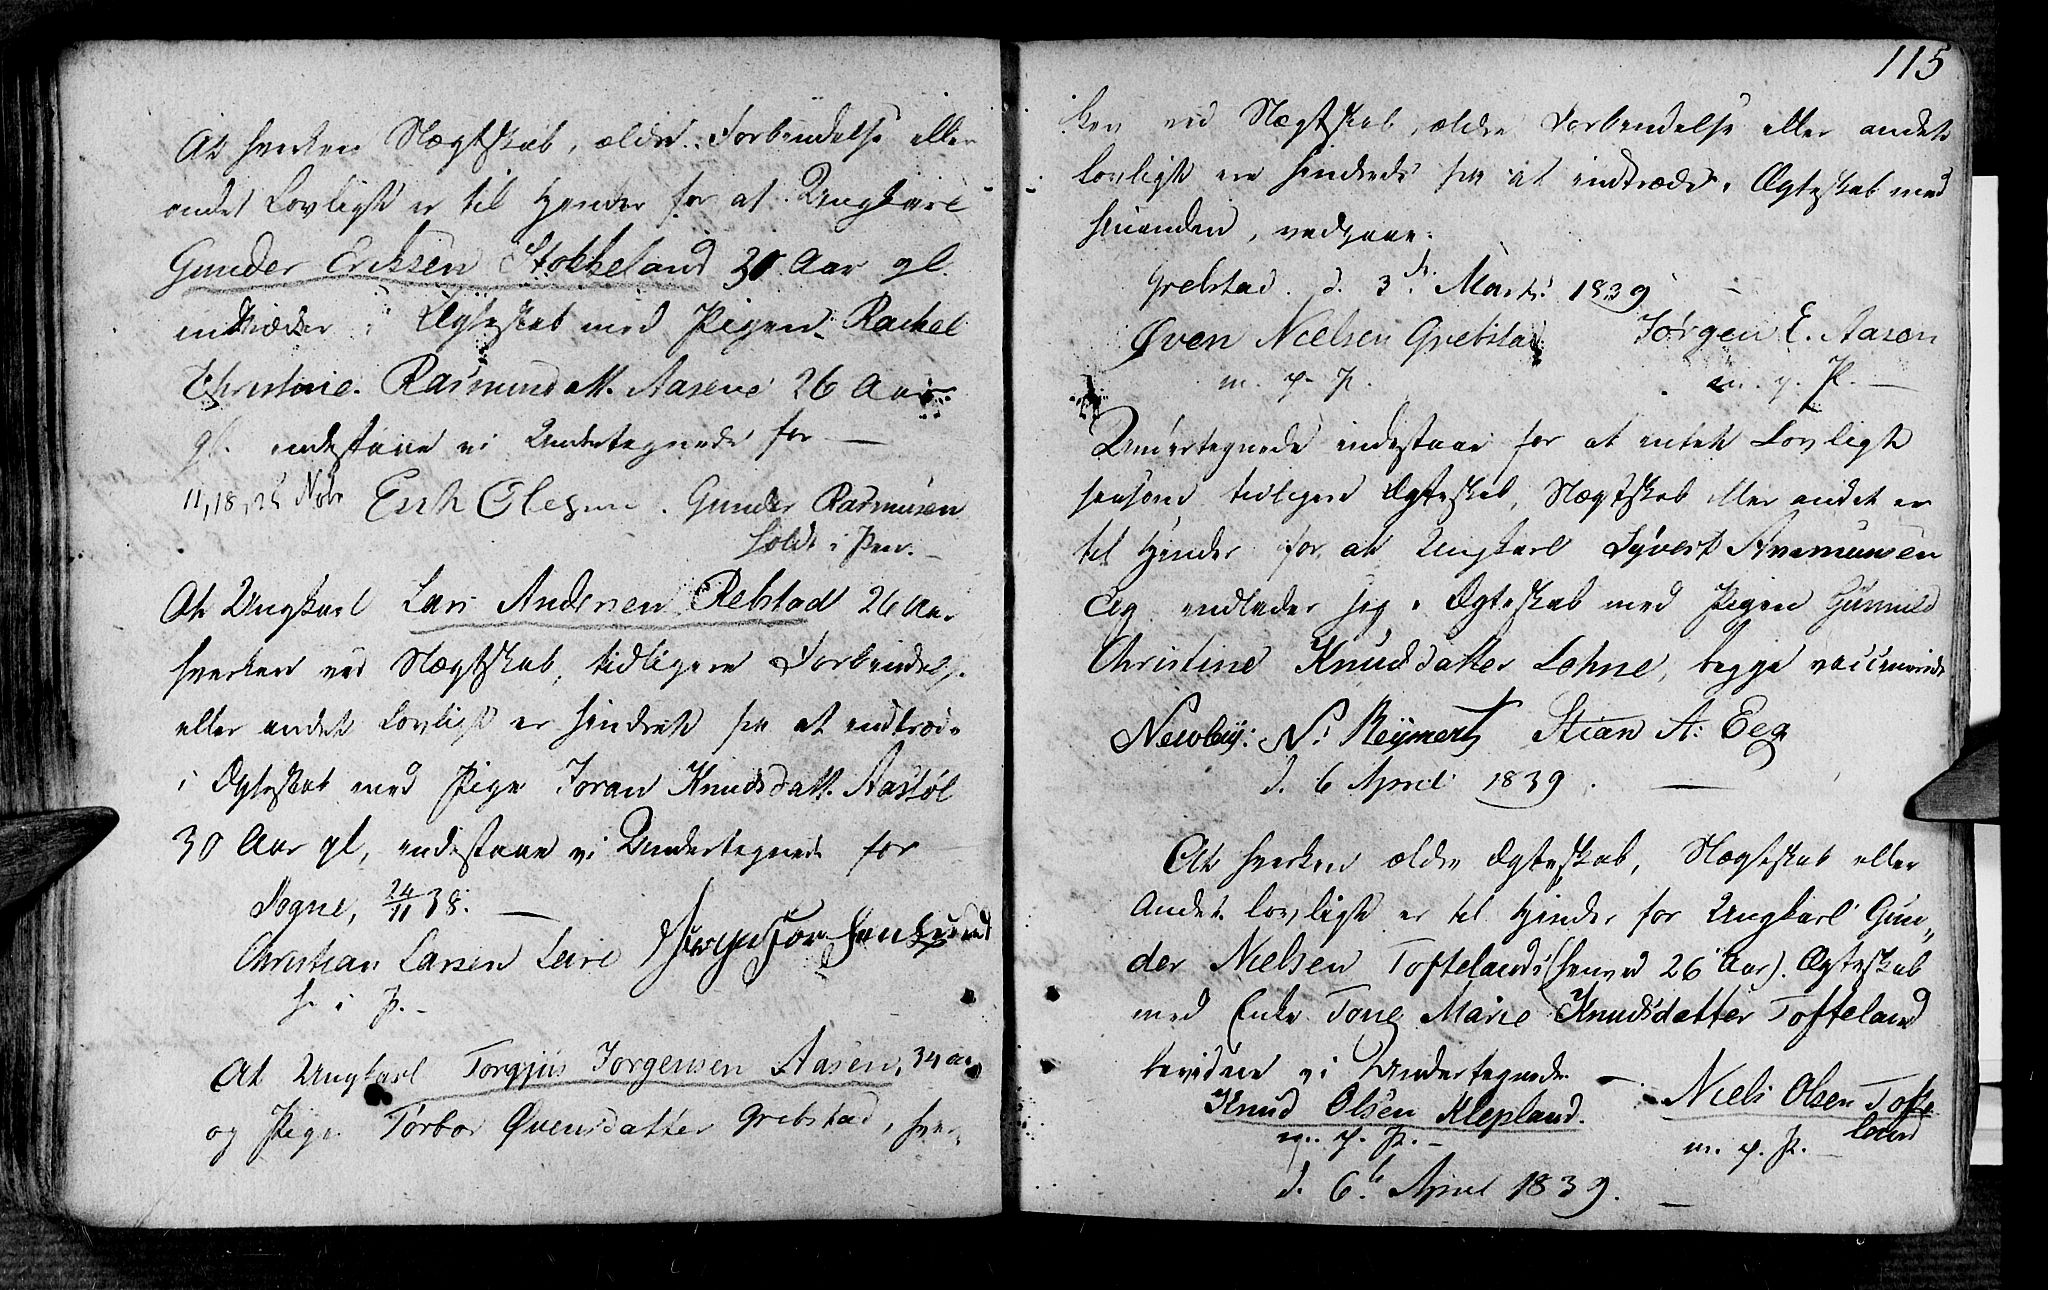 At hverken Slægtskab, ældre Forbindelse eller
andet Lovligt er til Hinder for at Ungkarl
Gunder Eriksen Stokkeland 30 Aar gl.
indtræder i Ægteskab med Pigen Rachel
Christine Rasmusdatt. Aasene 26 Aar
gl. indestaae vi Undertegnede for —
11, 18, 25 Nobr Erik Olesen. Gunder Rasmusen
hold i Pen. —
At Ungkarl Lars Andersen Rebstad 26 Aar
hverken ved Slægtskab, tidligere Forbindelse
eller andet Lovligt er hindret fra at indtræde
i Ægteskab med Pige Joran Knudsdatt. Aastøl
30 Aar gl, indestaae vi Undertegnede for
Sogne, 24/11 38. —
Christian Larsen Leire
h. i P. —
At Ungkarl Torgjus Jørgensen Aasen, 34 Aar
og Pige Tørbor Øvensdatter Grebstad, hver-
115
ken ved Slægtskab, ældre Forbindelse eller andet
lovligt ere hindrede fra at indtræde i Ægteskab med
hinanden, vedgaae.
Grebstad d. 3d. Marts 1839
Øven Nielsen Grebstad Jørgen E. Aasen
m. p. P. m. p. P. —
Undertegnede indestaar for at intet Lovligt
saasom tidligere Ægteskab, Slægtskab eller andet er
til Hinder for at Ungkarl Syvert Anamunsen
Eg indlader sig i Ægteskab med Pigen Gunnild
Christine Knudsdatter Lohne, begge vaccinerede
Newby: N. Reymert Stian A: Eeg
d. 6 April 1839. —
At hverken ældre Ægteskab, Slægteskab eller
Andet lovligt er til Hinder for Ungkarl Gun-
der Nielsen Toftelands 26 Aar). Ægteskab
med Enke Tone Marie Knudsdatter Tofteland
bevidne vi Undertegnede —
Knud Olsen Klepland. Niels Olsen Tofte
m. p. P. — land
m. p. P. —
d. 6t. April 1839. —